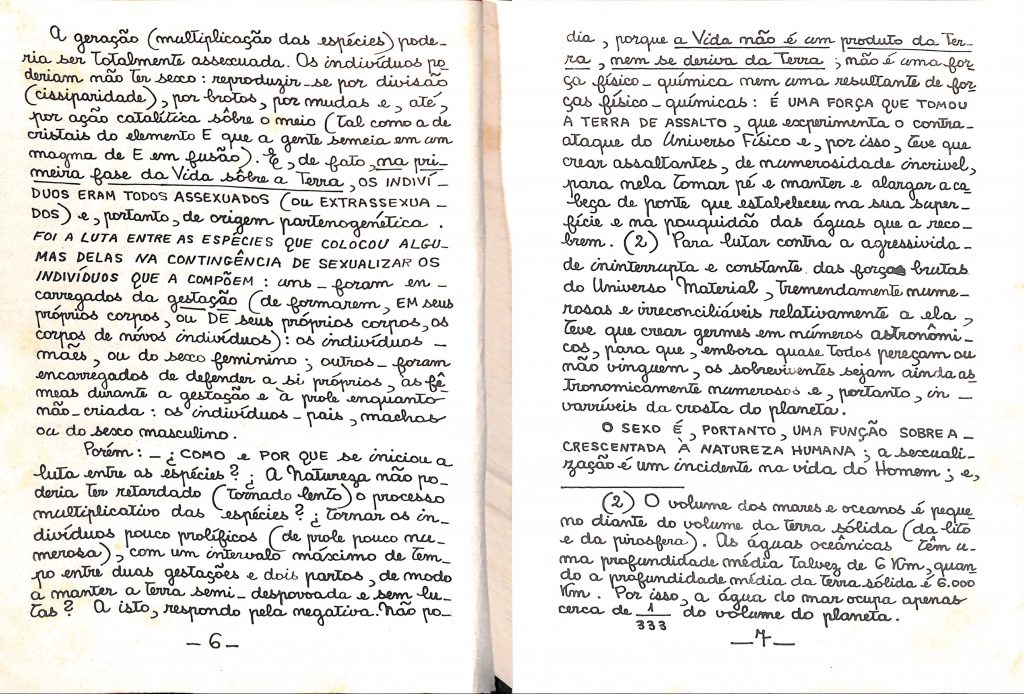 A geração (multiplicação das espécies) pode-
ria ser totalmente assexuada. Os indivíduos po
deriam não ter sexo: reproduzir-se por divisão
(cissiparidade), por brotos, por mudas e, até,
por ação catalítica sôbre o meio (tal como a de
cristais do elemento E que a gente semeia em um
magma de E em fusão). E, de fato, na pri-
meira fase da Vida sôbre a Terra, OS INDIVÍ-
DUOS ERAM TODOS ASSEXUADOS (OU EXTRASSEXUA-
DOS) e, portanto, de origem partenogenética.
FOI A LUTA ENTRE AS ESPÉCIES QUE COLOCOU ALGU-
MAS DELAS NA CONTINGÊNCIA DE SEXUALIZAR OS
INDIVÍDUOS QUE A COMPÕEM: uns foram en-
carregados da gestação (de formarem, EM seus
próprios corpos, ou DE seus próprios corpos, os
corpos de novos indivíduos): os indivíduos-
mães, ou do sexo feminino; outros foram
encarregados de defender a si próprios, as fê-
meas durante a gestação e à prole enquanto
não-criada: os indivíduos-pais, machos
ou do sexo masculino.
Porém: - ¿COMO e POR QUE se iniciou a
luta entre as espécies? ¿A Natureza não po-
deria ter retardado (tornado lento) o processo
multiplicativo das espécies? ¿tornar os in-
divíduos pouco prolíficos (de prole pouco nu-
merosa), com um intervalo máximo de tem-
po entre duas gestações e dois partos, de modo
a manter a terra semi-despovoada e sem lu-
tas? A isto, respondo pela negativa. Não po-
-6-
dia, porque a Vida não é um produto da Ter-
ra, nem se deriva da Terra; não é uma for
ça físico-química nem uma resultante de for
ças físico-químicas: É UMA FORÇA QUE TOMOU
A TERRA DE ASSALTO, que experimenta o contra-
ataque do Universo Físico e, por isso, teve que
crear assaltantes, de numerosidade incrivel,
para nela tomar pé e manter e alargar a ca
beça de ponte que estabeleceu na sua super-
fície e na pouquidão das águas que a reco-
brem. (2) Para lutar contra a agressivida-
de ininterrupta e constante das forças brutas
do Universo Material, tremendamente nume-
rosas e irreconciliáveis relativamente a ela,
teve que crear germes em números astronômi-
cos, para que, embora quase todos pereçam ou
não vinguem, os sobreviventes sejam ainda as
tronomicamente numerosos e, portanto, in-
varríveis da crosta do planeta.
O SEXO É, PORTANTO, UMA FUNÇÃO SOBREA-
CRESCENTADA À NATUREZA HUMANA; a sexuali-
zação é um incidente na vida do Homem; e,
(2) O volume dos mares e oceanos é peque
no diante do volume da terra sólida (da lito
e da pirosfera). As águas oceânicas têm u-
ma profundidade média talvez de 6 Km, quan
do a profundidade média da terra sólida é 6.000
Km. Por isso, a água do mar ocupa apenas
cerca de 1/333 do volume do planeta.
-7-